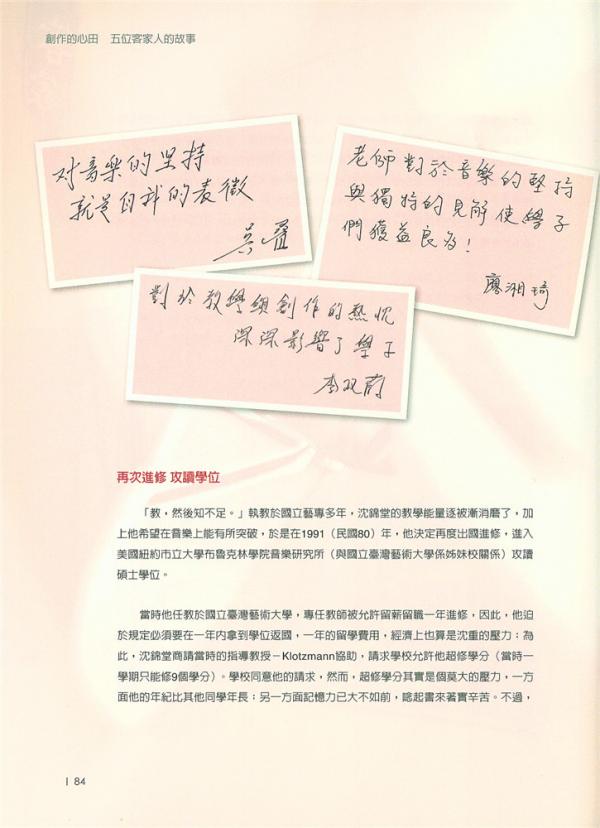 創作的心田　五位客家人的故事
对音樂的坚持
就是自我的表徵
吳疊
老師對於音樂的堅持
與獨特的見解使學子
們獲益良多！
廖湘琦
對於教學與創作的熱忱
深深影響了學子
李双蔚
再次進修 攻讀學位
「教，然後知不足。」執教於國立藝專多年，沈錦堂的教學能量逐被漸消磨了，加
上他希望在音樂上能有所突破，於是在1991（民國80）年，他決定再度出國進修，進入
美國紐約市立大學布魯克林學院音樂研究所（與國立臺灣藝術大學係姊妹校關係）攻讀
碩士學位。
當時他任教於國立臺灣藝術大學，專任教師被允許留薪留職一年進修，因此，他迫
於規定必須要在一年內拿到學位返國，一年的留學費用，經濟上也算是沈重的壓力；為
此，沈錦堂商請當時的指導教授－Klotzmann協助，請求學校允許他超修學分（當時一
學期只能修9個學分）。學校同意他的請求，然而，超修學分其實是個莫大的壓力，一方
面他的年紀比其他同學年長；另一方面記憶力已大不如前，唸起書來著實辛苦。不過，
84